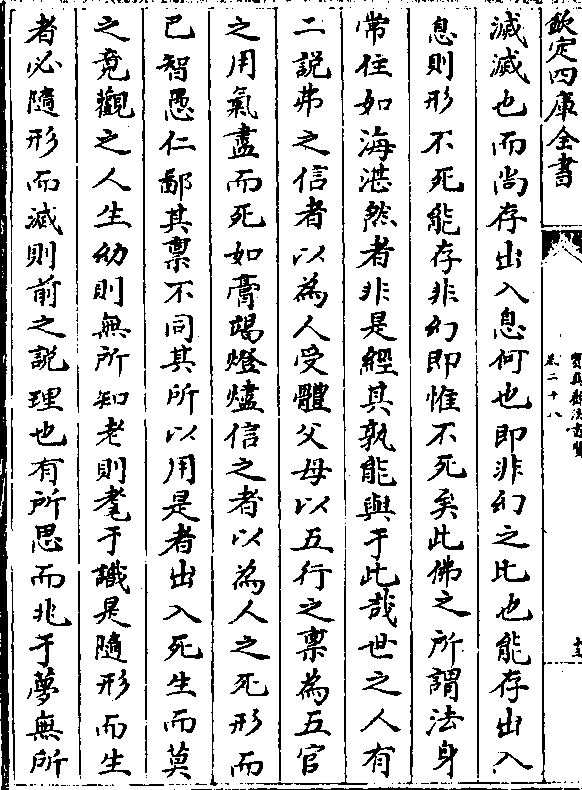 欽定四庫全書
滅滅也而尚存出入息何也即非幻之比也能存出入
息則形不死能存非幻即惟不死矣此佛之所謂法身
常住如海湛然者非是經其孰能與于此哉世之人有
二説弗之信者以為人受體父母以五行之禀為五官
之用氣盡而死如膏竭燈燼信之者以為人之死形而
已智愚仁鄙其禀不同其所以用是者出入死生而莫
之竟觀之人生幼則無所知老則耄于識是隨形而生
者必隨形而滅則前之説理也有所思而兆于夢無所
卷二十八